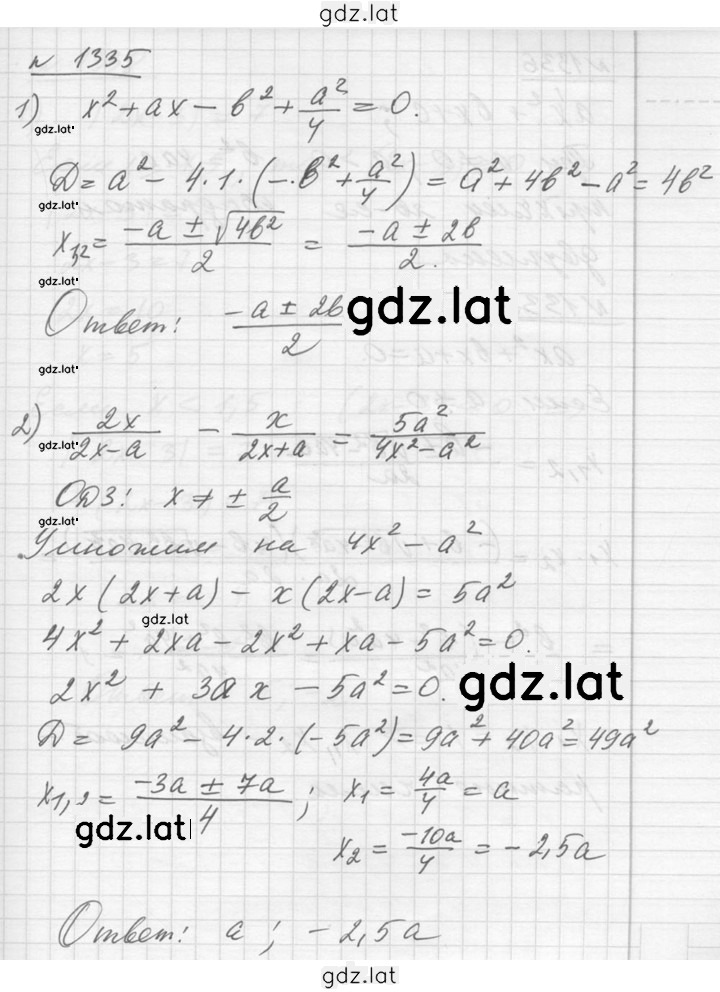 gdz.lat
№ 1335
1) x² + ax - b² + a²/4 = 0.
gdz.lat
D = a² - 4·1·(-b² + a²/4) = a² + 4b² - a² = 4b²
gdz.lat
x₁,₂ = (-a ± √4b²)/2 = (-a ± 2b)/2.
gdz.lat
Ответ: (-a ± 2b)/2 gdz.lat
gdz.lat
2) 2x/(2x-a) - x/(2x+a) = 5a²/(4x²-a²)
gdz.lat
ОДЗ: x ≠ ± a/2
gdz.lat
Умножим на 4x² - a²
2x(2x+a) - x(2x-a) = 5a²
gdz.lat
4x² + 2xa - 2x² + xa - 5a² = 0.
2x² + 3ax - 5a² = 0. gdz.lat
D = 9a² - 4·2·(-5a²) = 9a² + 40a² = 49a²
x₁,₂ = (-3a ± 7a)/4; x₁ = 4a/4 = a
gdz.lat
x₂ = -10a/4 = -2,5a
Ответ: a; -2,5a
gdz.lat